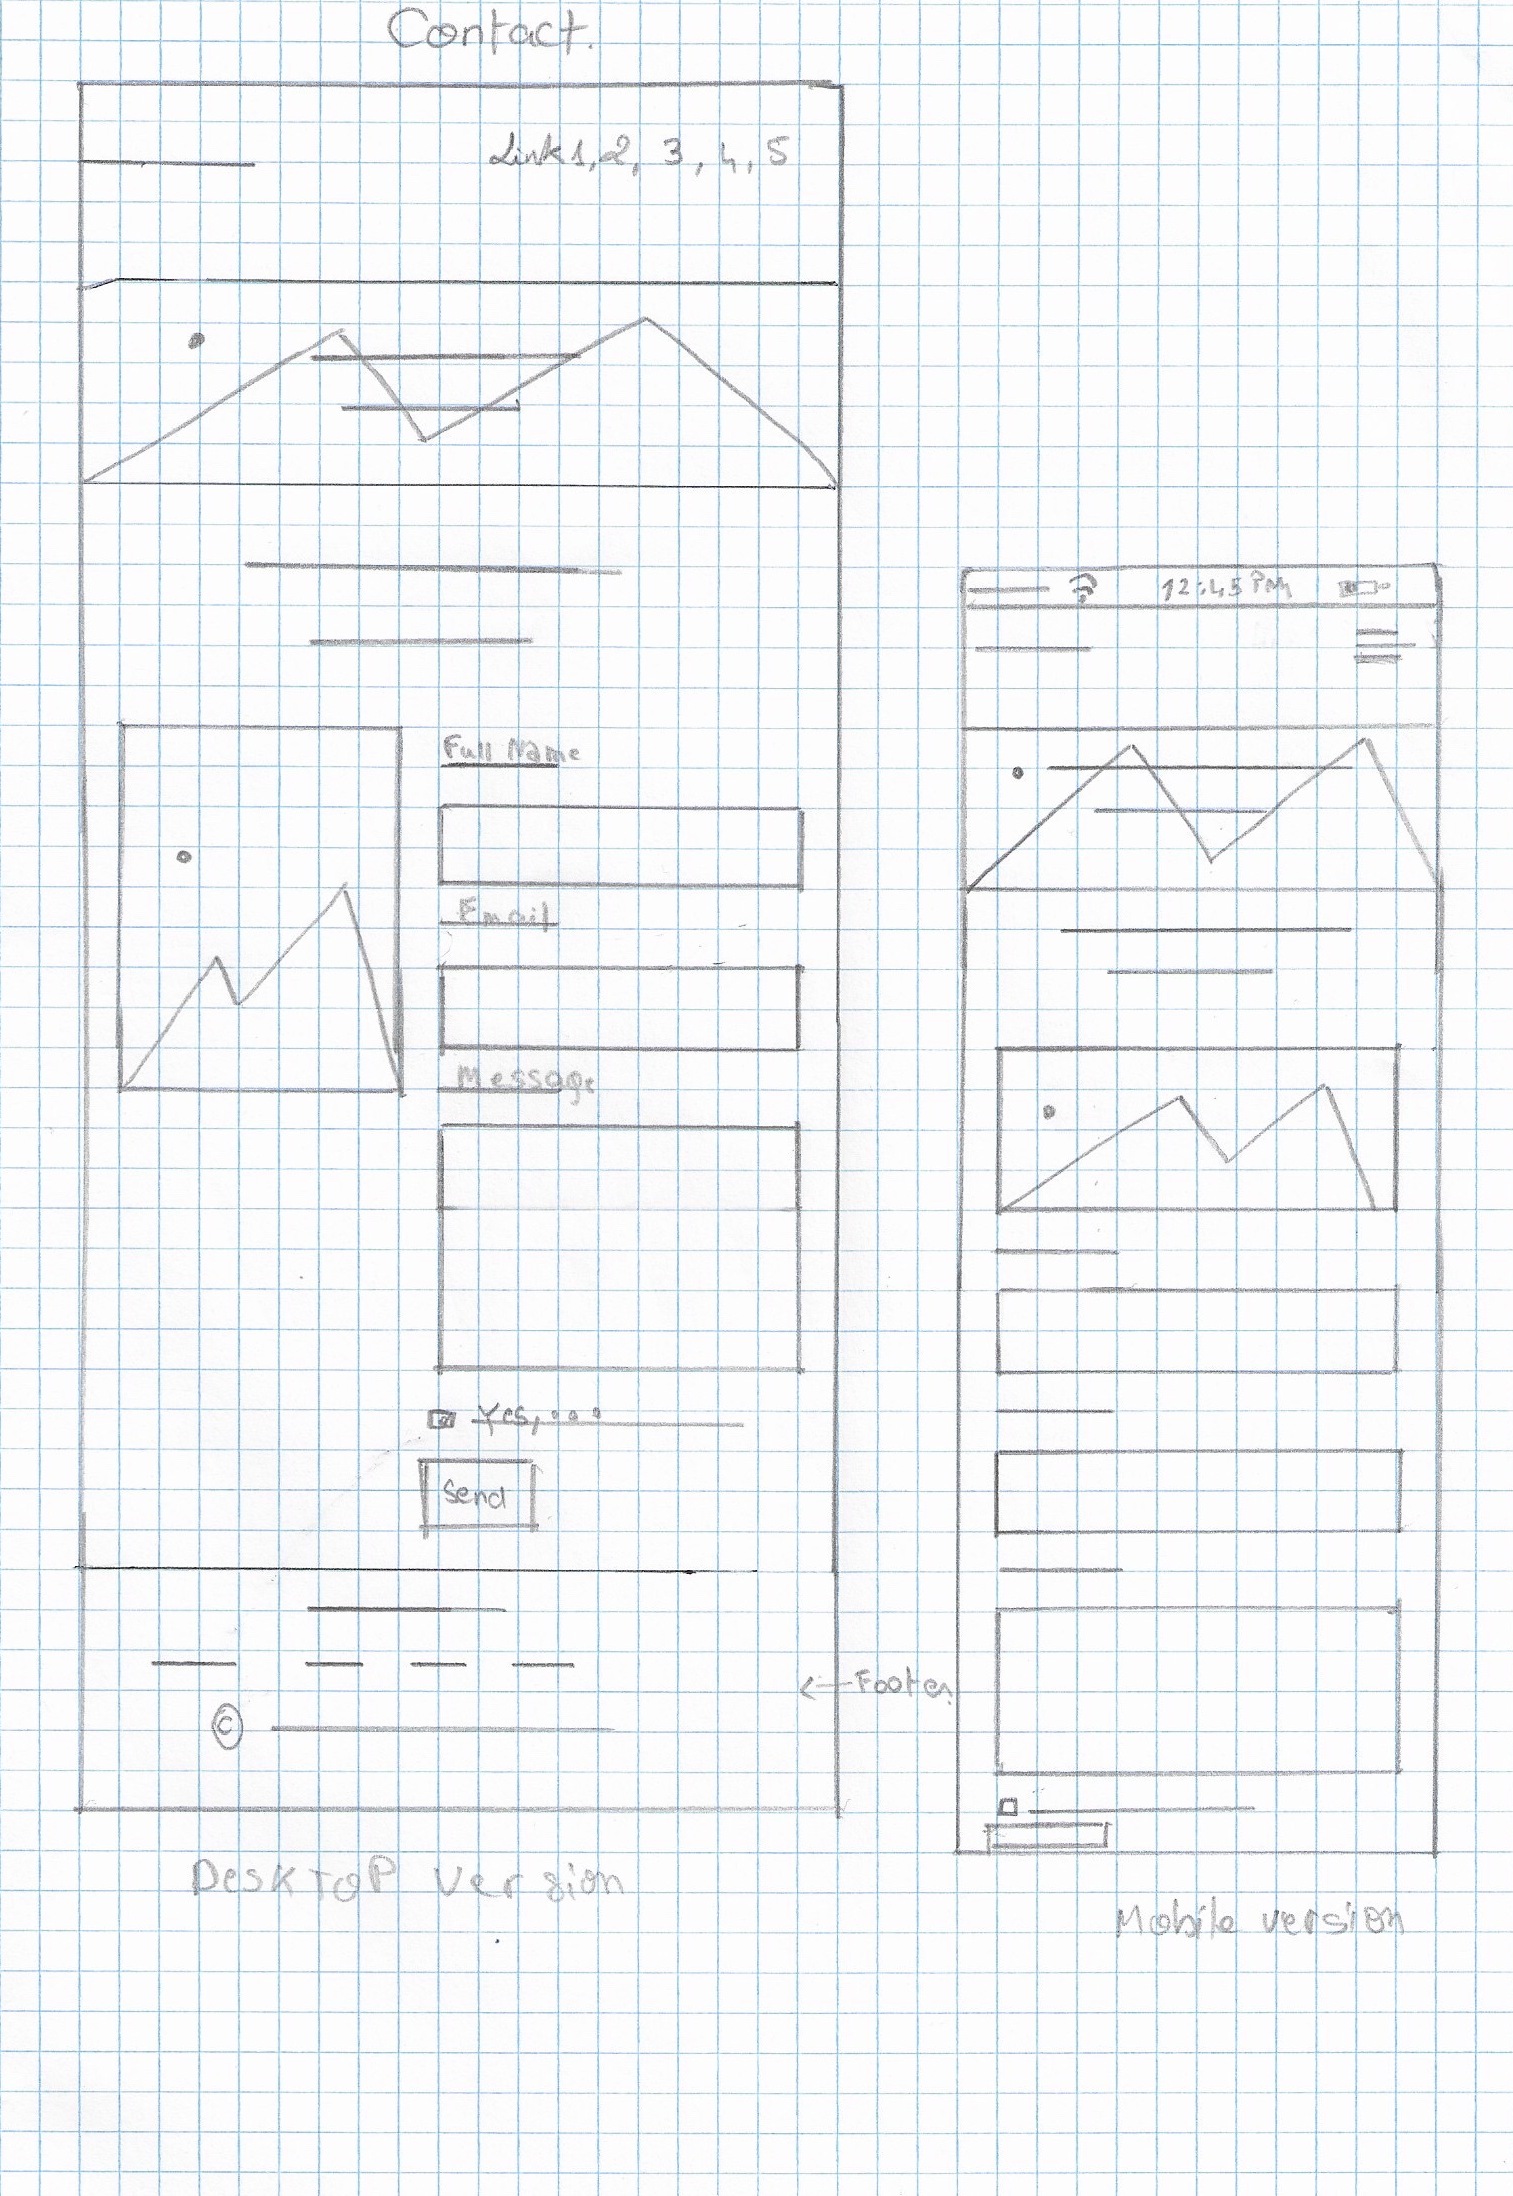 Contact.
Link 1, 2, 3, 4, 5
12:45 PM
Full Name
Email
Message
Yes, ...
Send
©
<-- Footer
Desktop version
Mobile version